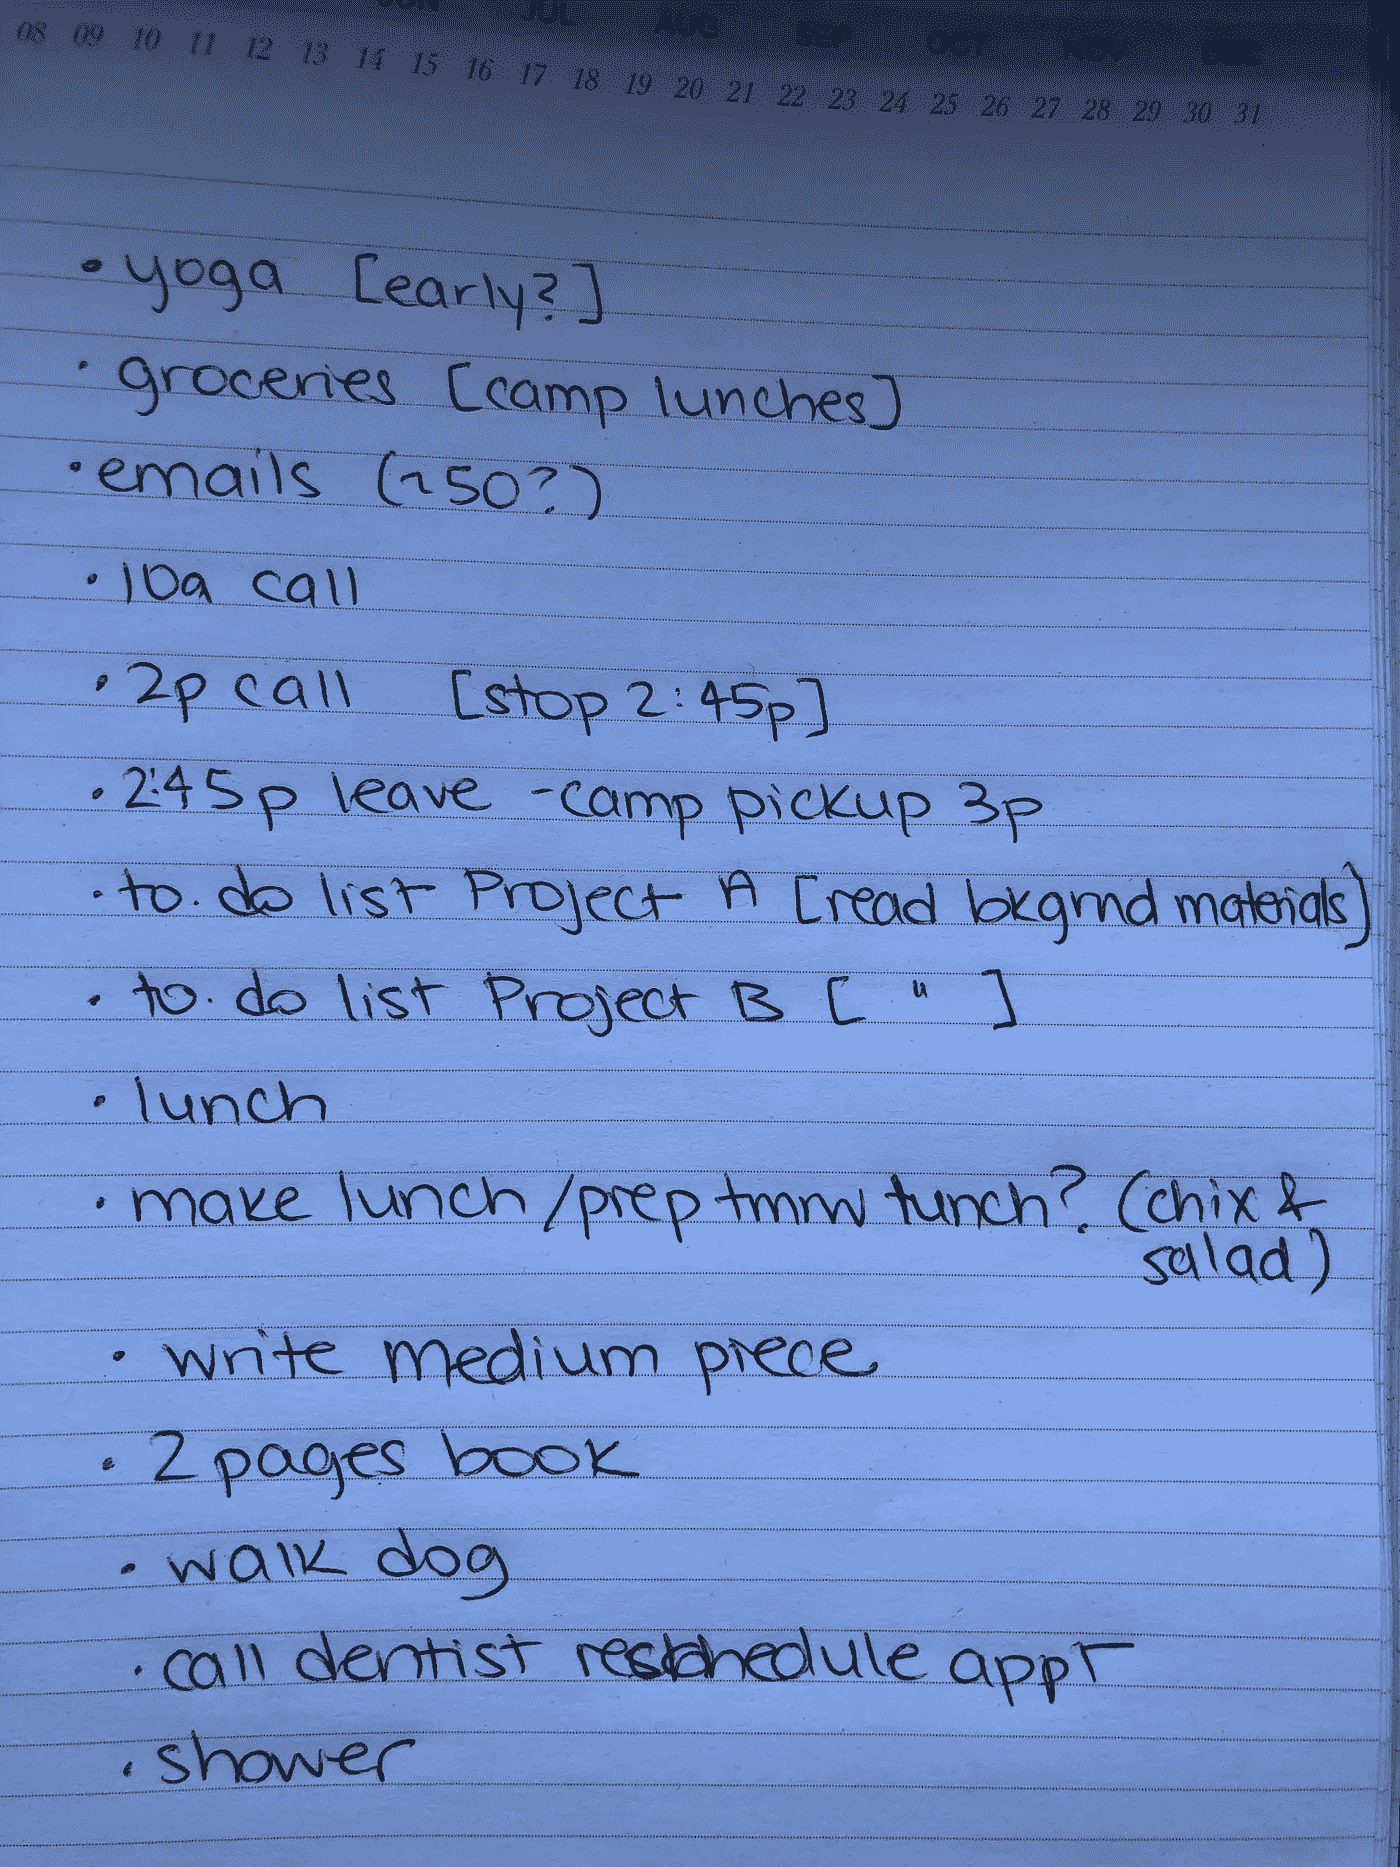 JUN JUL AUG SEP OCT NOV DEC
08 09 10 11 12 13 14 15 16 17 18 19 20 21 22 23 24 25 26 27 28 29 30 31
• yoga [early?]
• groceries [camp lunches]
• emails (~50?)
• 10a call
• 2p call [stop 2:45p]
• 2:45p leave - camp pickup 3p
• to. do list Project A [read bkgrnd materials]
• to. do list Project B [ " ]
• lunch
• make lunch / prep tmrw lunch? (chix &
salad)
• write medium piece
• 2 pages book
• walk dog
• call dentist reschedule appt
• shower